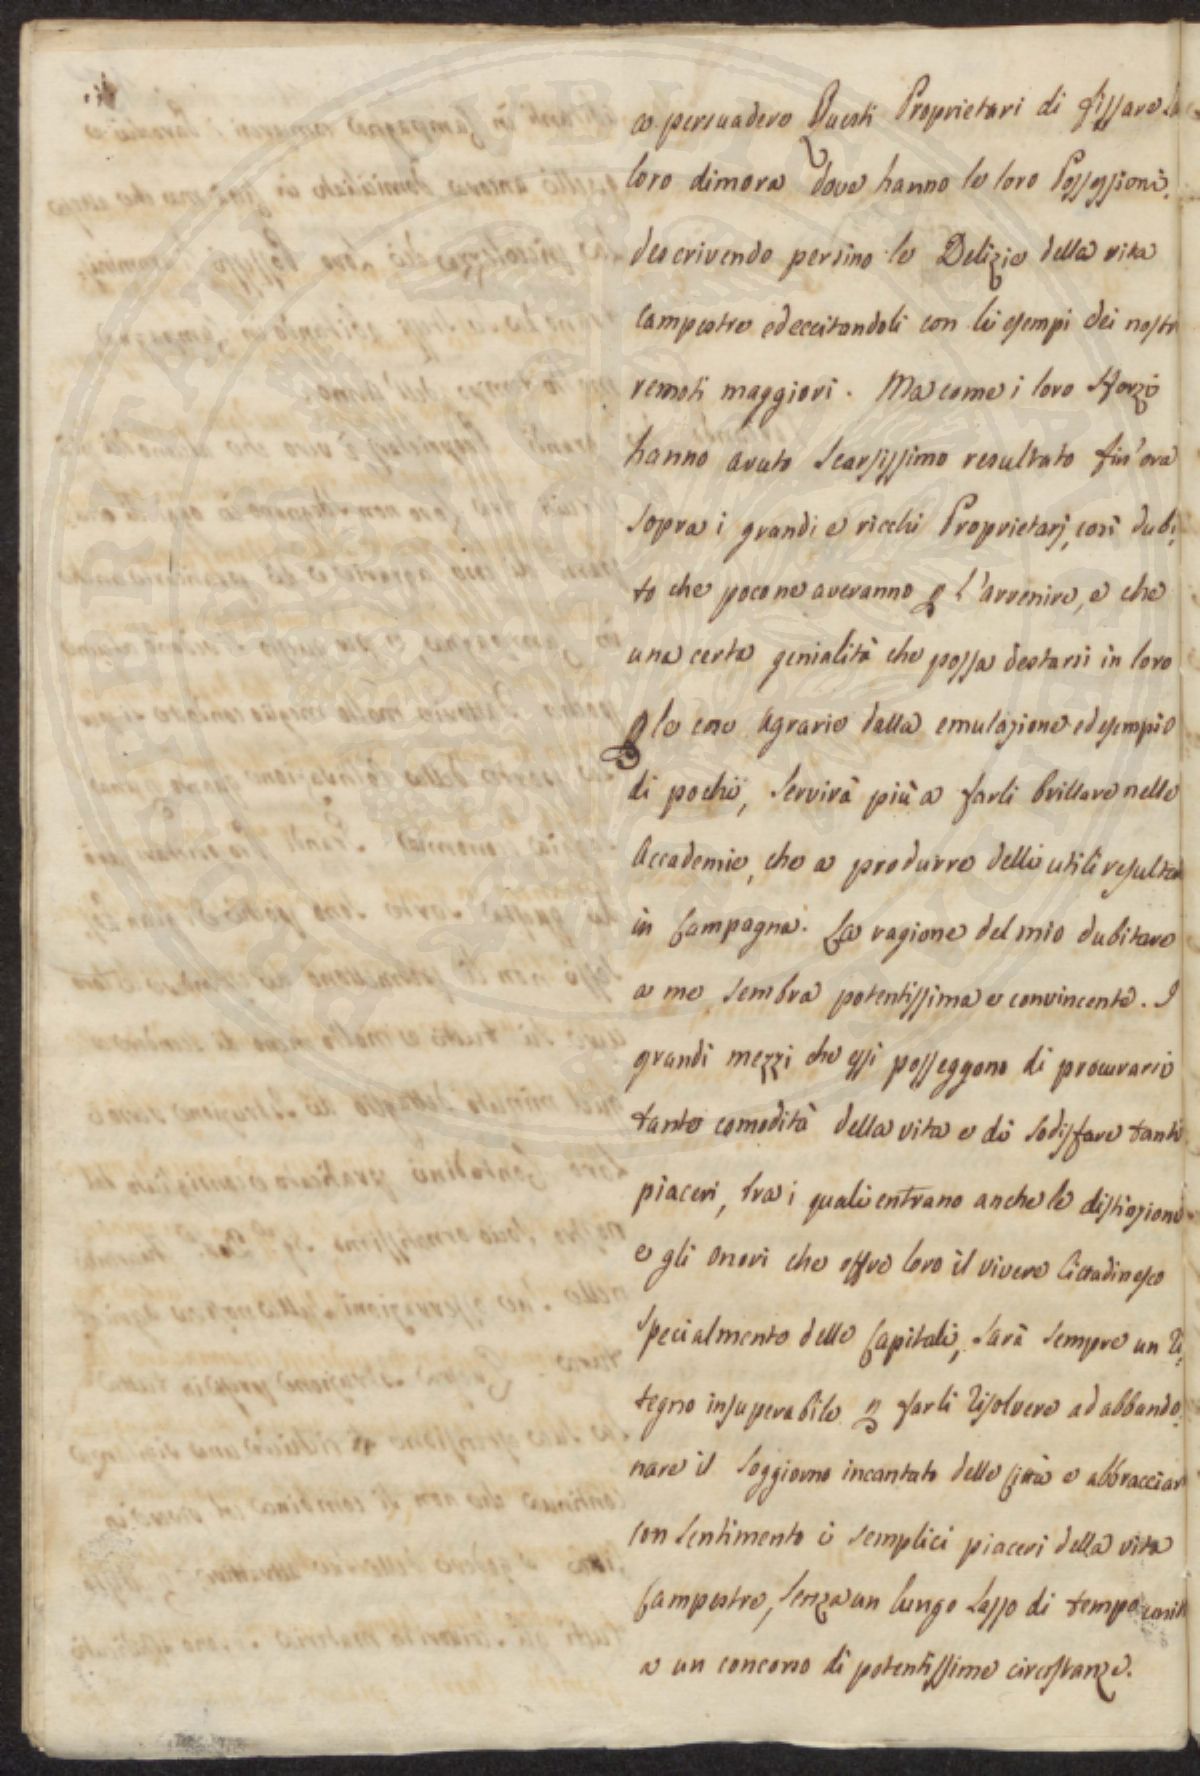 a persuadere Questi Proprietari di fissare La
loro dimora dove hanno le loro Possessioni,
descrivendo persino le Delizie della vita
Campestre ed eccitandoli con li esempi dei nostri
remoti maggiori. Ma come i loro sforzi
hanno avuto scarsissimo resultato fin'ora
sopra i grandi e ricchi Proprietarj, così dubi,
to che poco ne averanno p l'avvenire, e che
una certa genialità che possa destarsi in loro
p le cose Agrarie dalla emulazione ed esempio
di pochi, servirà più a farli brillare nelle
Accademie, che a produrre delli utili resultati
in Campagna. La ragione del mio dubitare
a me sembra potentissima e convincente. I
grandi mezzi che essi posseggono di procurarsi
tante comodità della vita e di sodisfare tanti
piaceri, tra i quali entrano anche le distinzioni
e gli onori che offre loro il vivere Cittadinesco
specialmente delle Capitali, sarà sempre un ri,
tegno insuperabile p farli risolvere ad abbando,
nare il soggiorno incantato delle Città e abbracciar
con sentimento i semplici piaceri della vita
Campestre, senza un lungo lasso di tempo
a un concorso di potentissime circostanze.